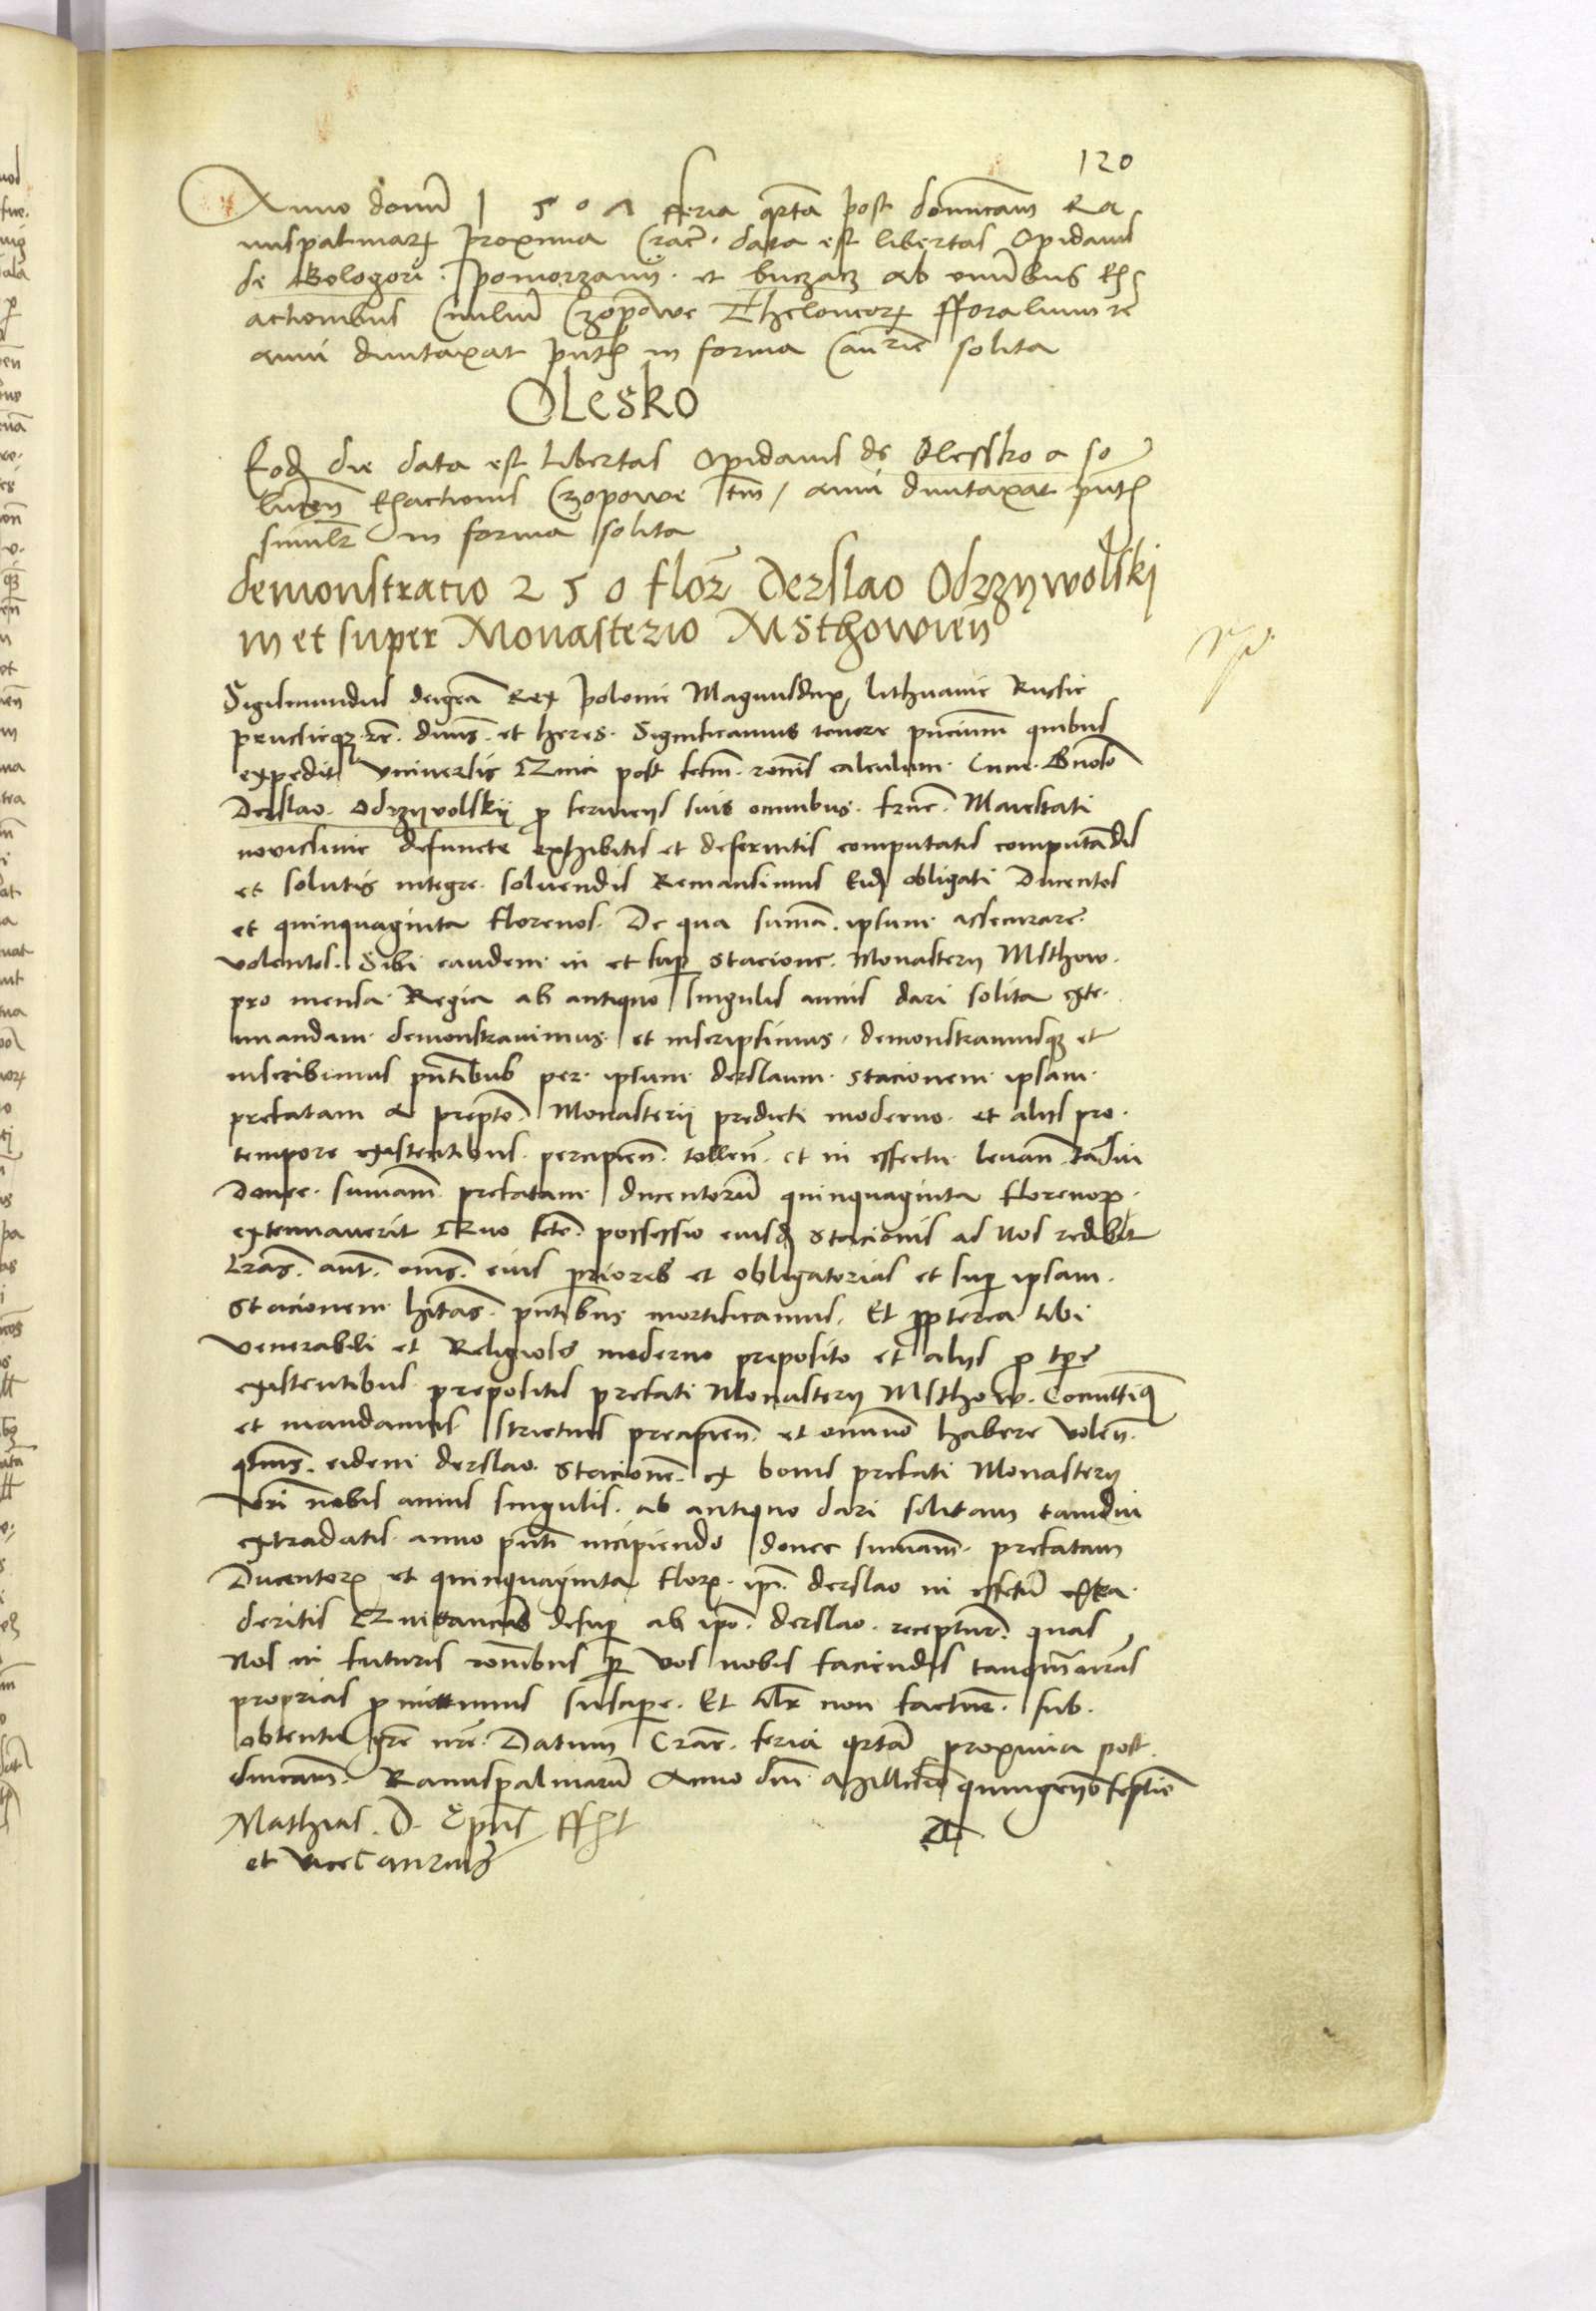 120
Anno domī 1507 fferia qrta post domīcam Ra
mispalmarꝝ proxima Crac̄. data est libertas Opidanis
de Gologori. pomorzanij. et buczacz ab omībus Ex
actionibus Ciuiliū Czopowe Theloneorꝝ fforalium rc̄
anni duntaxat pn̄tis in forma Cancrie solita
OLesko
Eodē die data est Libertas Opidanis de Olessko a so
lucōn̄ Exactionis Czopowe tm̄ / anni duntaxat pn̄tis
similr̄ in forma solita
demonstracio 250 flor̄ Derslao Odrzywolskj
in et super Monasterio Msthowien̄
Sigismundus deigrā Rex polonie Magnusdux lithuanie Russie
prussieqꝫ rc̄. dn̄s. et heres. Significamus tenore pn̄cium quibus
expedit vniversis Quia post fctm̄. rōnis calculum. Cum. Gn̄oso
Derslao. Odrzyvolskij ꝓ servicijs suis omnibus. frn̄e. Maiestati
novissime defuncte exhibitis et deservitis computatis computādis
et solutis integre. solvendis Remansimus Eidē obligati Ducentos
et quinquaginta florenos. De qua sum̄a. ipsum assecurare.
volentes. Sibi eandem in et sup stacione. Monasterij Msthow.
pro mensa. Regia ab antiquo singulis annis dari solita exte.
nuandam. demonstravimus. et inscripsimus. demonstramusqꝫ et
inscribimus pn̄tibus per. ipsum derslaum. stacionem ipsam.
prefatam a prepto. Monasterij predicti moderno. et alijs pro.
tempore existentibus. percipien̄. tollen̄. et in effectu levan̄. tādiu
Donec. sum̄am prefatam ducentorū quinquaginta florenorꝝ.
extenuaverit Quo fcto. possessio eiusdē stacionis ad Nos redibit
Lrās. aut̄. om̄s. eius priores et obligatorias et sup ipsam.
stacionem hitas. pn̄tibus mortificamus. Et propterea tibi
venerabili et Religioso moderno preposito et alijs ꝓ tpe
existentibus prepositis prefati Monasterij Msthow. Comittimꝰ
et mandamus strictius precipien̄. et omnino habere volen̄.
qtinus. eidem derslao. stacionē. ex bonis prefati Monasterij
vrī nobis annis singulis. ab antiquo dari solitam tamdiu
extradatis anno pn̄ti incipiendo donec sum̄am. prefatam
Ducentorꝝ et quinquaginta florꝝ. ipī. derslao in effectū extra.
deritis Quittancias desup ab ipo. derslao. recepturi. quas
Nos in futuris rōnibus ꝑ vos nobis faciendis tanqm̄ nrās
proprias ꝓmittimus suscipe. Et alr̄ non facturi. sub.
obtentu grē nrē. Datum Crac̄. feria qrtā proxima post
dn̄icam̄. Ramispalmarū Anno dn̄i Millimo quingen̄o septio
Mathias. D. Epūs sst
et vicecancrius